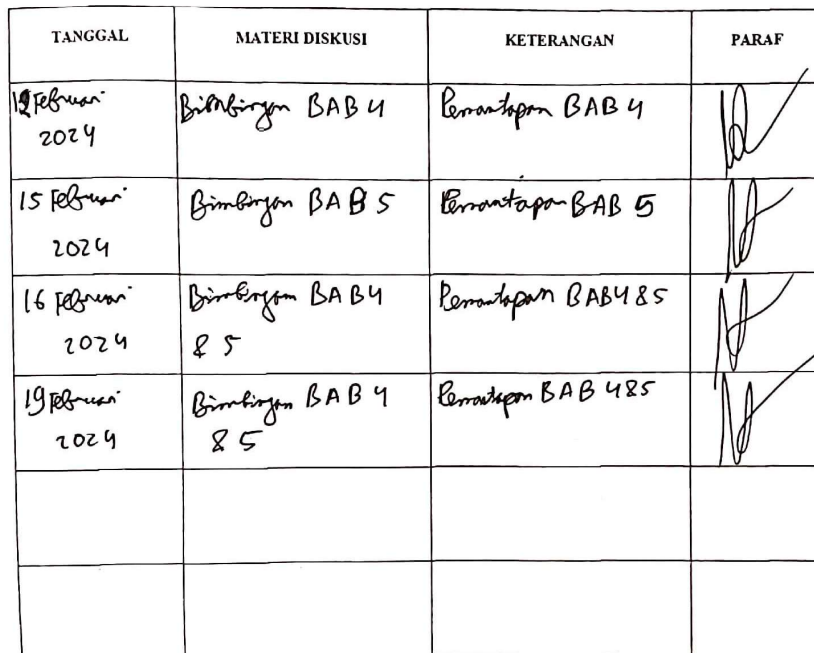 TANGGAL MATERI DISKUSI KETERANGAN PARAF
Februari Bimbingan BAB 4 Pemantapan BAB 4
2024
15 Februari Bimbingan BAB 5 Pemantapan BAB 5
2024
16 Februari Bimbingan BAB 4 Pemantapan BAB 4 & 5
2024 & 5
19 Februari Bimbingan BAB 4 Pemantapan BAB 4 & 5
2024 & 5